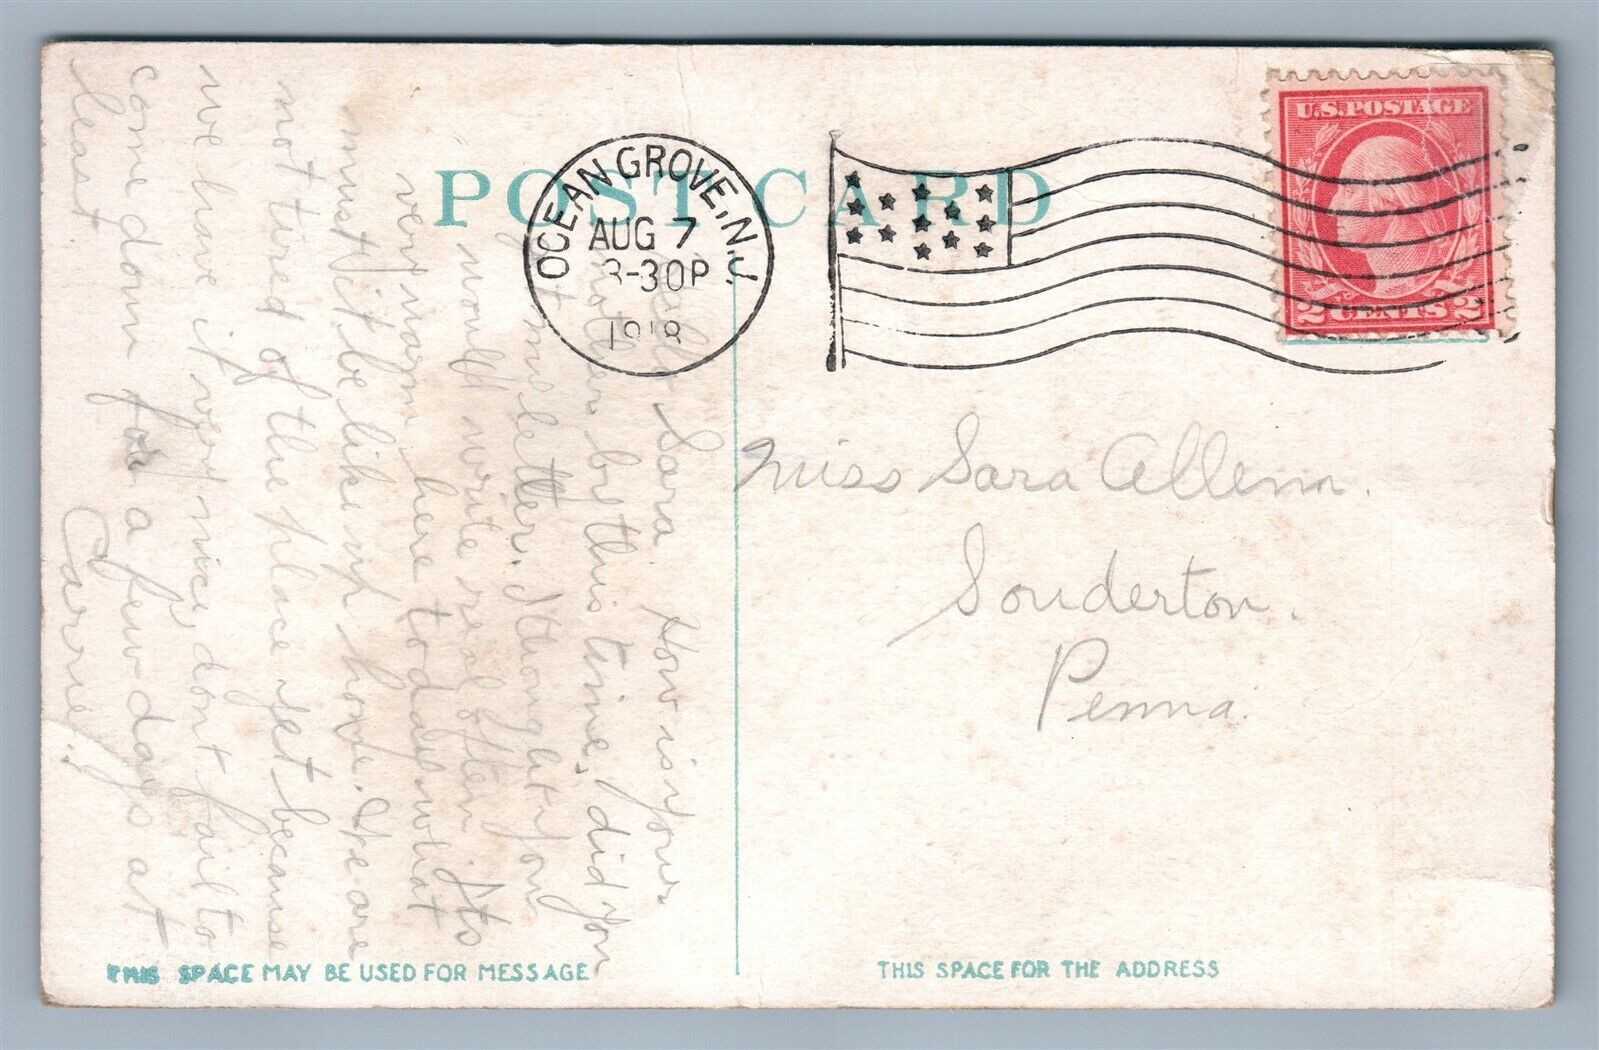 POST CARD
OCEAN GROVE, N.J.
AUG 7
3-30P
1918
U.S. POSTAGE
2 CENTS 2
Miss Sara Allem.
Souderton.
Penna.
Sara How is your
mother by this time, did you
get my letter. I thought you
would write real often its
very warm here today what
must it be like up home. We are
not tired of the place yet because
we have it very nice, dont fail to
come down for a few days at
least
Carrie.
THIS SPACE MAY BE USED FOR MESSAGE
THIS SPACE FOR THE ADDRESS